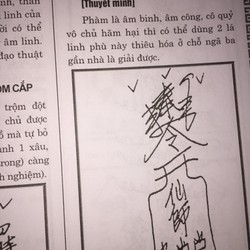 [Thuyết minh]
Phàm là âm binh, âm công, cô quỷ
vô chủ hãm hại thì có thể dùng 2 lá
linh phù này thiêu hóa ở chỗ ngã ba
gần nhà là giải được.
, thân
linh của
ời có thể
âm linh.
đạo thuật
OM CẮP
trộm đột
chủ được
ố mà tự bỏ
ành 1 xâu,
rong) càng
h nghiệm).
仙師